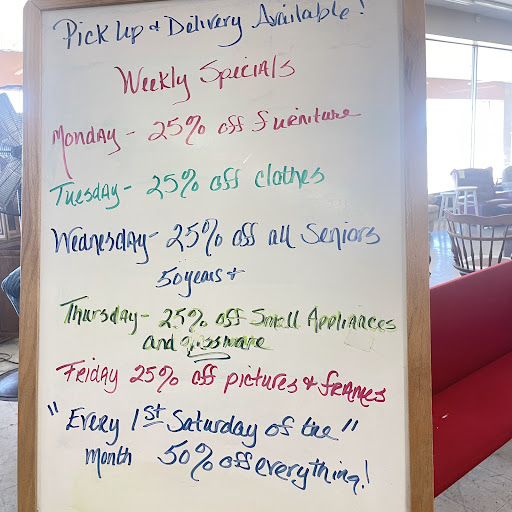 Pick Up & Delivery Available!
Weekly Specials
Monday - 25% off Furniture
Tuesday - 25% off clothes
Wednesday - 25% off all Seniors
50years +
Thursday - 25% off Small Appliances
and glassware
Friday 25% off pictures & frames
"Every 1st Saturday of the"
month 50% off everything!